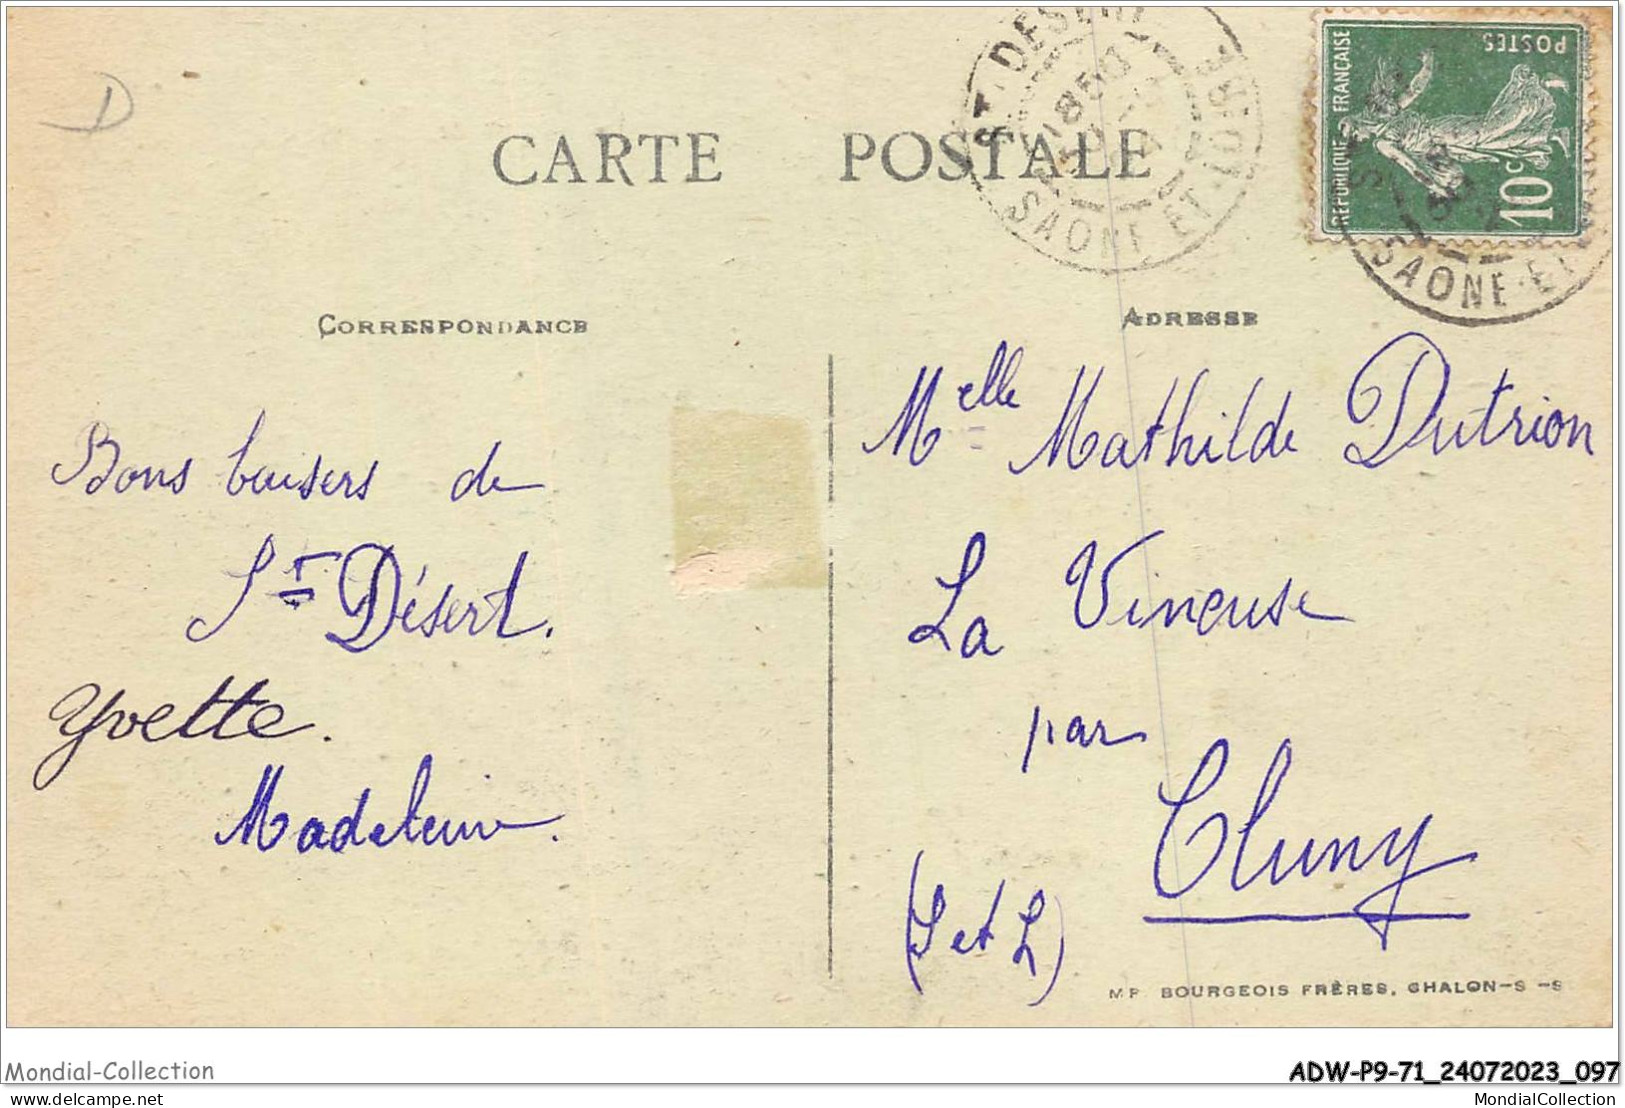 D
CARTE POSTALE
ST DESERT
SAONE ET LOIRE
REPUBLIQUE FRANÇAISE
POSTES
10c
SAONE-ET
CORRESPONDANCE
ADRESSE
Bons baisers de
St Désert.
Yvette.
Madeleine.
Melle Mathilde Dutrion
La Vineuse
par
Cluny
(S et L)
MP BOURGEOIS FRÈRES, CHALON-S-S
Mondial-Collection
ADW-P9-71_24072023_097
delcampe.net
MondialCollection